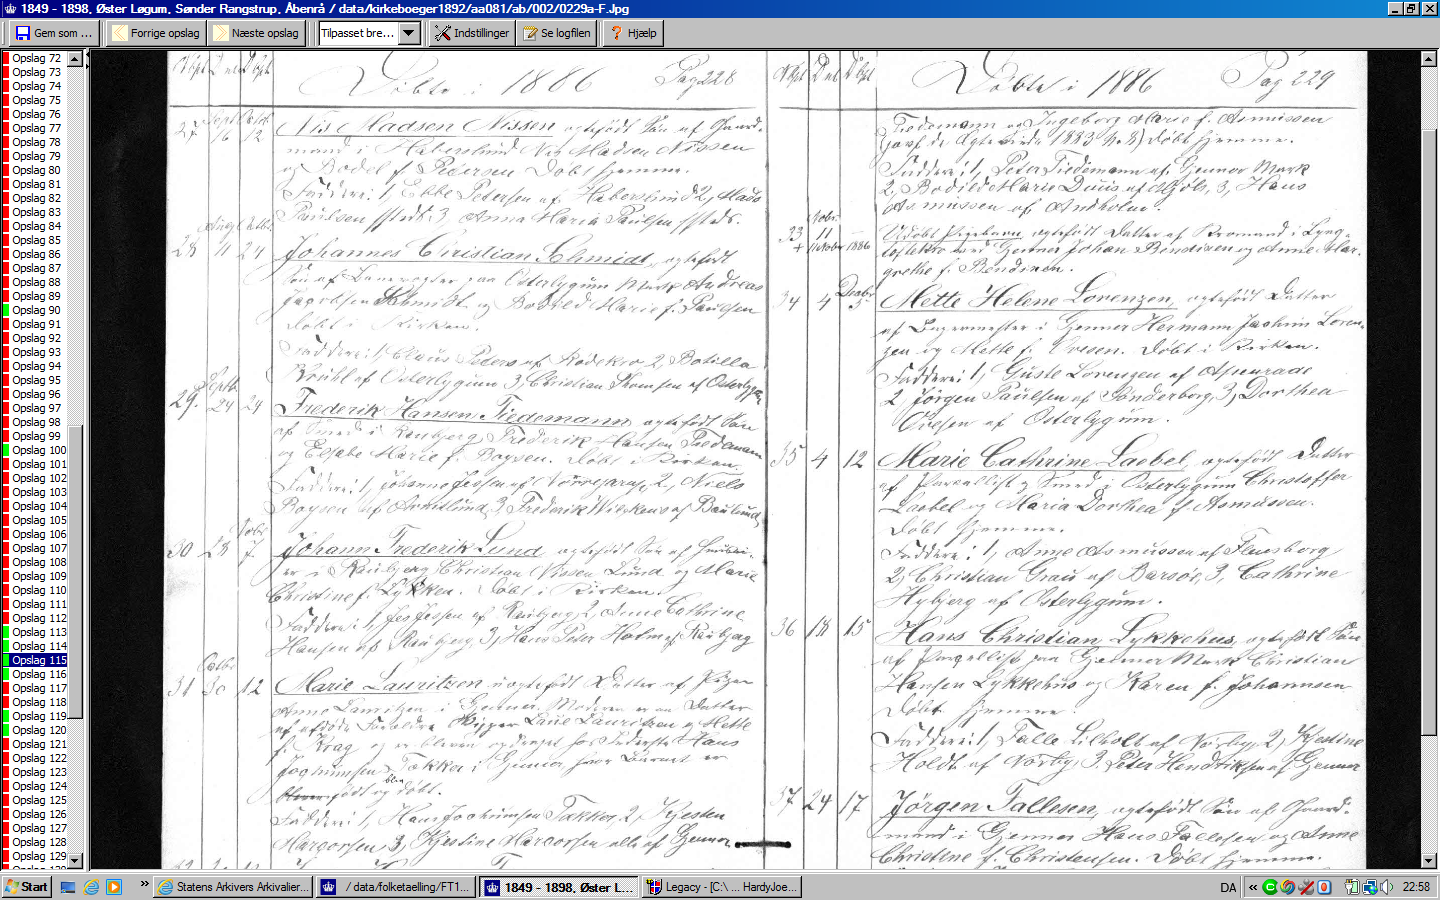 1849 - 1898, Øster Løgum, Sønder Rangstrup, Åbenrå / data/kirkeboeger1892/aa081/ab/002/0229a-F.Jpg
Gem som ... Forrige opslag Næste opslag Tilpasset bre... Indstillinger Se logfilen Hjælp
Opslag 72
Opslag 73
Opslag 74
Opslag 75
Opslag 76
Opslag 77
Opslag 78
Opslag 79
Opslag 80
Opslag 81
Opslag 82
Opslag 83
Opslag 84
Opslag 85
Opslag 86
Opslag 87
Opslag 88
Opslag 89
Opslag 90
Opslag 91
Opslag 92
Opslag 93
Opslag 94
Opslag 95
Opslag 96
Opslag 97
Opslag 98
Opslag 99
Opslag 100
Opslag 101
Opslag 102
Opslag 103
Opslag 104
Opslag 105
Opslag 106
Opslag 107
Opslag 108
Opslag 109
Opslag 110
Opslag 111
Opslag 112
Opslag 113
Opslag 114
Opslag 115
Opslag 116
Opslag 117
Opslag 118
Opslag 119
Opslag 120
Opslag 121
Opslag 122
Opslag 123
Opslag 124
Opslag 125
Opslag 126
Opslag 127
Opslag 128
Opslag 129
Døbte i 1886 Pag 228
27 6 12 Nis Madsen Nissen ægtefødt Søn af Gaard-
mand i Haberslund Nis Madsen Nissen
Døbt hjemme.
Faddere: 1, Ebbe Petersen af Haberslund 2, Mads
Paulsen 3, Anna Maria Paulsen
28 11 24 Johannes Christian Schmidt, ægtefødt
Søn af paa Osterlygum Mark Andreas
Schmidt og Bodild Marie f. Paulsen
Døbt i Kirken.
Faddere: 1, Claus Peders af Rødekro 2, Botilla
Brühl af Osterlygum 3, Christian Thomsen af Osterlygum
29. 24 24 Frederik Hansen Tiedemann, ægtefødt Søn
af Smed i Raubjerg Frederik Hansen Tiedemann
og Elsabe Marie f. Boysen. Døbt i Kirken.
Faddere: 1, Johanne Jessen af 2, Niels
Boysen af 3, Frederik Wilckens af
30 28 7. Johann Frederik Lund, ægtefødt Søn af
i Raubjerg Christian Nissen Lund og Marie
Christine f. Lykken. Døbt i Kirken.
Faddere: 1, Jes Jessen af Raubjerg 2, Anne Cathrine
Hansen af Raubjerg 3, Hans Peter Holm af Raubjerg
31 30 12 Marie Lauritzen uægtefødt Datter af Pigen
Anne Lauritzen i Gjenner. Moderen er en Datter
af afdøde Forældre Skipper Lauritzen og Mette
f. Krag og er bleven opdraget hos Inderste Hans
Jochumsen Takker i Gjenner hvor Barnet er
blev
født og døbt.
Faddere: 1, Hans Jochumsen Takker, 2, Kjesten
Margarsen 3, Kjestine Margarsen alle af Gjenner
Døbte i 1886 Pag 229
Tiedemann og Ingeborg Marie f. Asmussen
Døbt hjemme.
Faddere: 1, Peter Tiedemann af Gjenner Mark
2, Bodild Marie Duus af 3, Hans
Asmussen af Andholm.
Nobr.
33 11 Udøbt Pigebarn, ægtefødt Datter af
Gjenner Johan Bendixen og Anne Mar-
grethe f. Bendixen.
34 4 5 Mette Helene Lorenzen, ægtefødt Datter
af i Gjenner Hermann Jochim Loren-
zen og Mette f. Døbt i Kirken.
Faddere: 1, Guste Lorenzen af Apenrade
2, Jørgen Paulsen af Sonderborg 3, Dorthea
af Osterlygum.
35 4 12 Marie Cathrine Laebel, ægtefødt Datter
af Parcellist og Smed i Osterlygum Christoffer
Laebel og Maria Dorthea f. Asmussen.
Døbt hjemme.
Faddere: 1, Anne Asmussen af Flensborg
2, Christian Grau af Barsøe, 3, Cathrine
Hybjerg af Osterlygum.
36 18 15 Hans Christian Lykkehus, ægtefødt Søn
af Parcellist paa Gjenner Mark Christian
Hansen Lykkehus og Karen f. Johannsen
Døbt hjemme.
Faddere: 1, Falle af Nørby, 2, Kjestine
Holdt af Nørby, 3, Peter Hendriksen af Gjenner
37 24 17 Jørgen Fallesen, ægtefødt Søn af Gaard-
mand i Gjenner Hans Fallesen og Anne
Christine f. Christensen. Døbt hjemme.
Start Statens Arkivers Arkivalier... / data/folketaelling/FT1... 1849 - 1898, Øster L... Legacy - [C:\ ... HardyJoe... DA 22:58